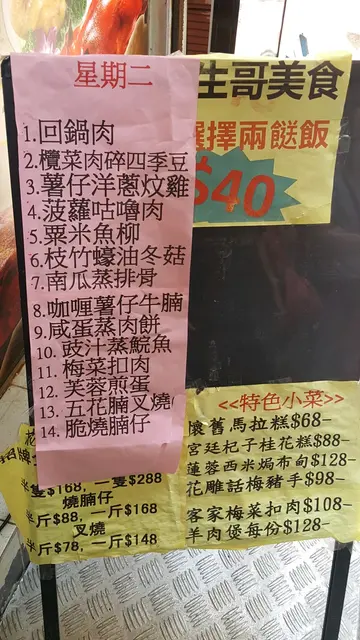 星期二
1.回鍋肉
2.欖菜肉碎四季豆
3.薯仔洋蔥炆雞
4.菠蘿咕嚕肉
5.粟米魚柳
6.枝竹蠔油冬菇
7.南瓜蒸排骨
8.咖喱薯仔牛腩
9.咸蛋蒸肉餅
10.豉汁蒸鯇魚
11.梅菜扣肉
12.芙蓉煎蛋
13.五花腩叉燒
14.脆燒腩仔
生哥美食
選擇兩餸飯
$40
<<特色小菜>>
懷舊馬拉糕$68-
宮廷杞子桂花糕$88-
蓮蓉西米焗布甸$128-
花雕話梅豬手$98-
客家梅菜扣肉$108-
羊肉煲每份$128-
招牌
半隻$168,一隻$288
燒腩仔
半斤$88,一斤$168
叉燒
半斤$78,一斤$148